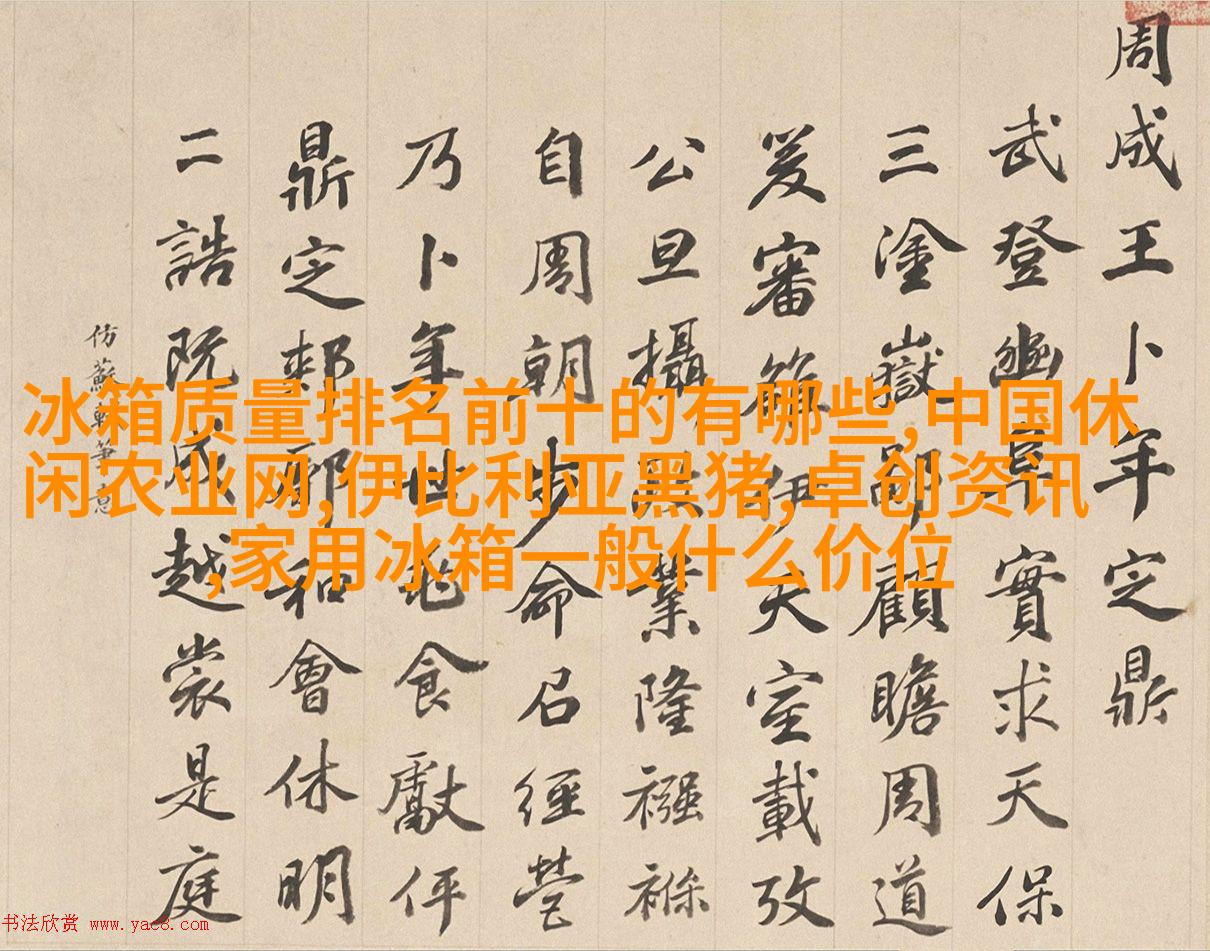 冰箱质量排名前十的有哪些,中国休
闲农业网,伊比利亚黑猪,卓创资讯
,家用冰箱一般什么价位
周成王卜年定鼎
武登豳阜實求天保
三塗嶽鄙顧瞻周道
爰審伊天室載攷
公旦攝業隆襁褓
自周朝步命召經營
乃卜年世兆食獻伻
鼎定郟鄏和會休明
二誥既成越裳是庭
仿蘇軾筆意
书法欣赏 www.yac8.com